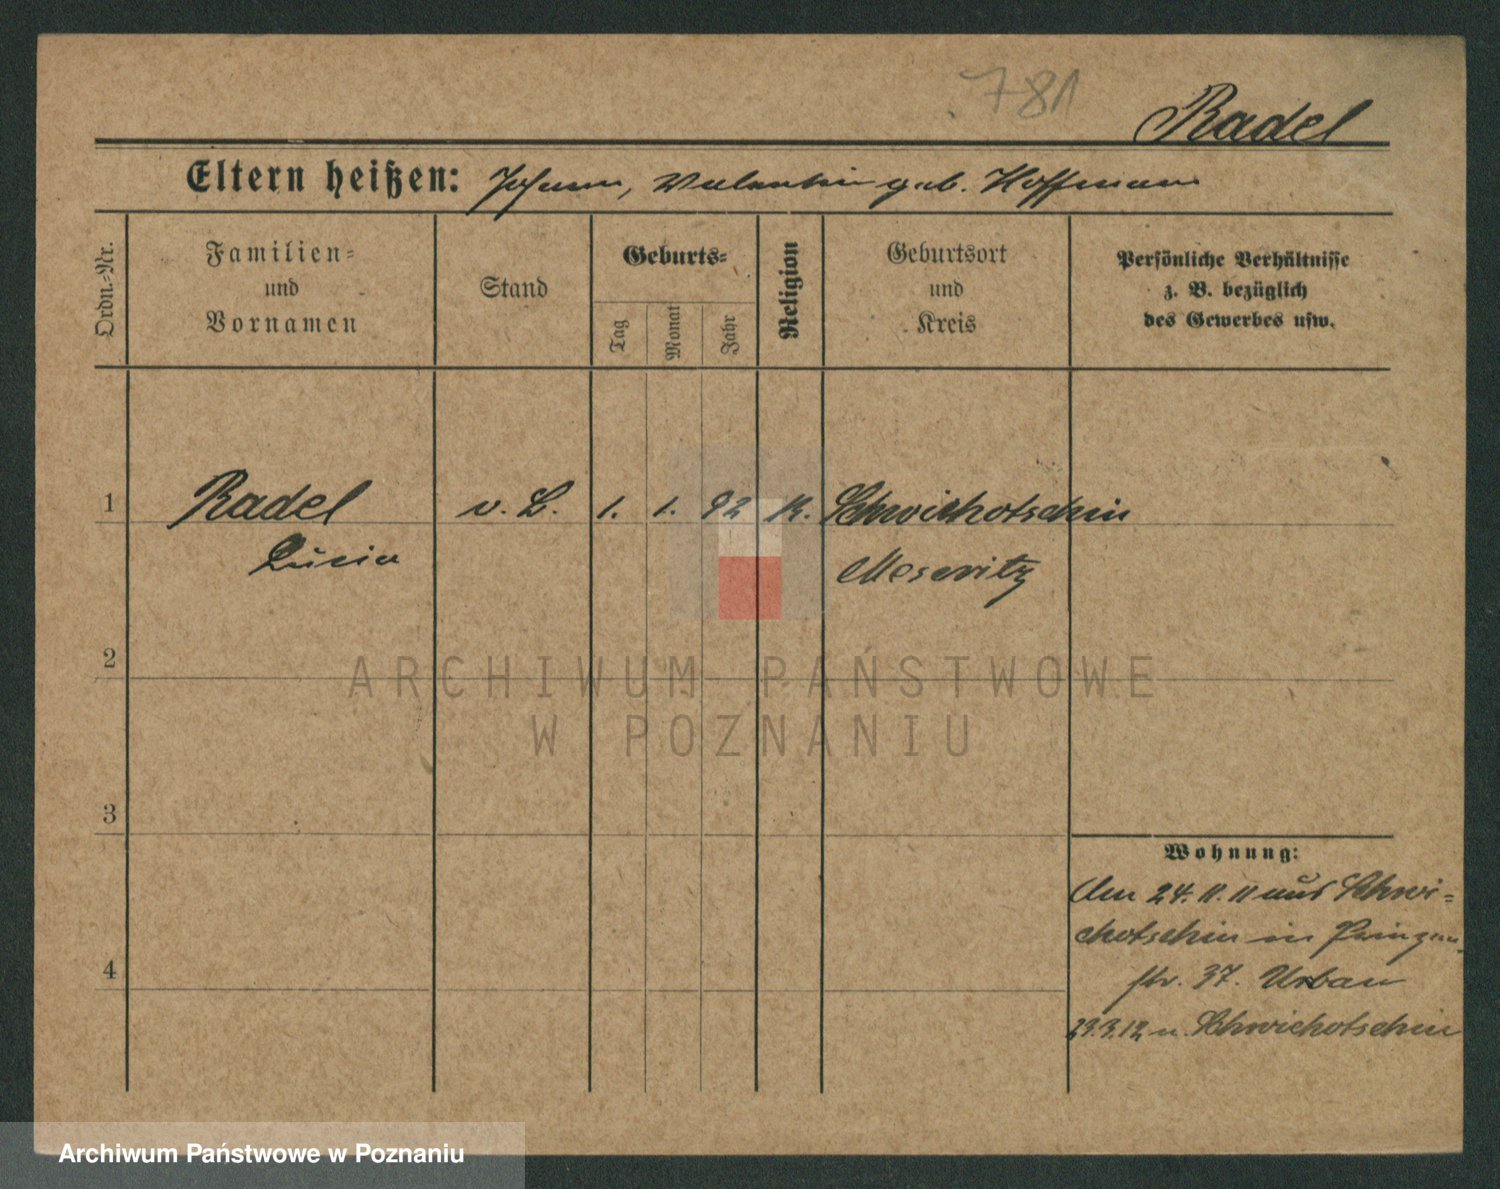 781
Radel
Eltern heißen: Johann, Valentin geb. Hoffmann
Ordn.-Nr.
Familien-
und
Vornamen
Stand
Geburts-
Tag
Monat
Jahr
Religion
Geburtsort
und
Kreis
Persönliche Verhältnisse
z. B. bezüglich
des Gewerbes usw.
1 Radel v. L. 1. 1. 92 K. Schwichotschin
Lucia Meseritz
2
ARCHIWUM PAŃSTWOWE
W POZNANIU
3
Wohnung:
Am 24. 11. 11 aus Schwi-
chotschin in Prinzen-
4
str. 37. Urban
29.3.12 n. Schwichotschin
Archiwum Państwowe w Poznaniu